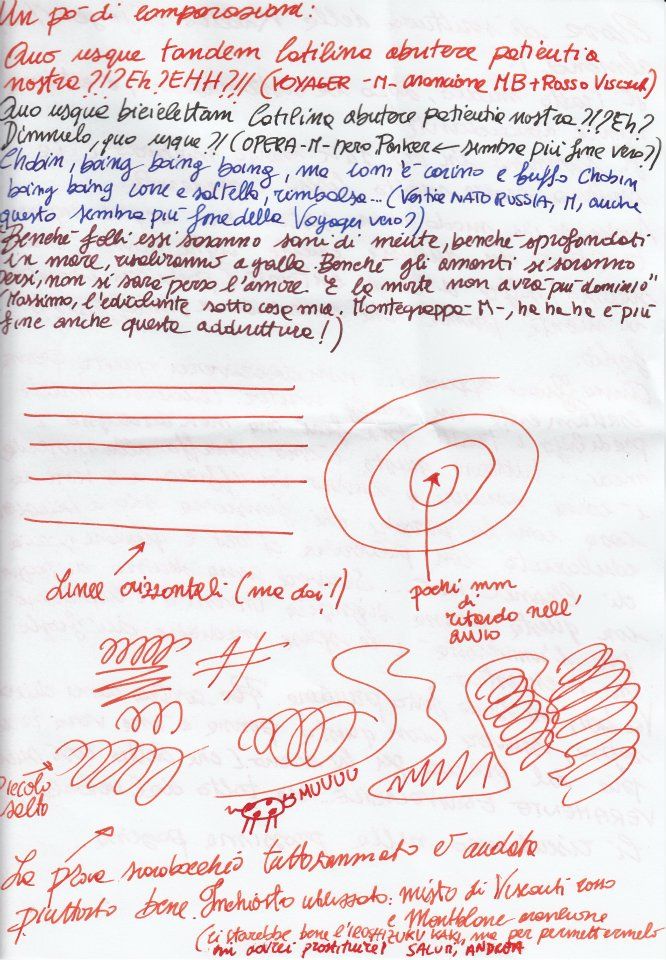 Un po' di comparazioni:
Quo usque tandem Catilina abutere patientia
nostra?!?Eh?EHH?!! (VOYAGER -M- arancione MB+Rosso Visconti)
Quo usque biciclettam Catilina abutere patientia nostra?!?Eh?
Dimmelo, quo usque?! (OPERA-M-nero Parker ← sembra più fine vero?)
Chobin, boing boing boing, ma com'è carino e buffo Chobin
boing boing corre e saltella, rimbalza... (Vertice NATO RUSSIA, M, anche
questo sembra più fine della Voyager vero?)
Benchè folli essi saranno sani di mente, benchè sprofondati
in mare, risaliranno a galla. Benchè gli amanti si saranno
persi, non si sarà perso l'amore "E la morte non avrà più dominio"
(Massimo, l'edicolante sotto casa mia. Montegrappa-M-, ha ha ha è più
fine anche questa addirittura!)
Linee orizzontali (ma dai!)
pochi mm
di
ritardo nell'
avvio
Piccolo
salto
MUUUU
La prova scarabocchio tuttosommato è andata
piuttosto bene. Inchiostro utilizzato: misto di Visconti rosso
e Montblanc arancione
(ci starebbe bene l'IROSHIZUKU KAKI, ma per permettermelo
mi dovrei prostituire! SALUT, ANDREA